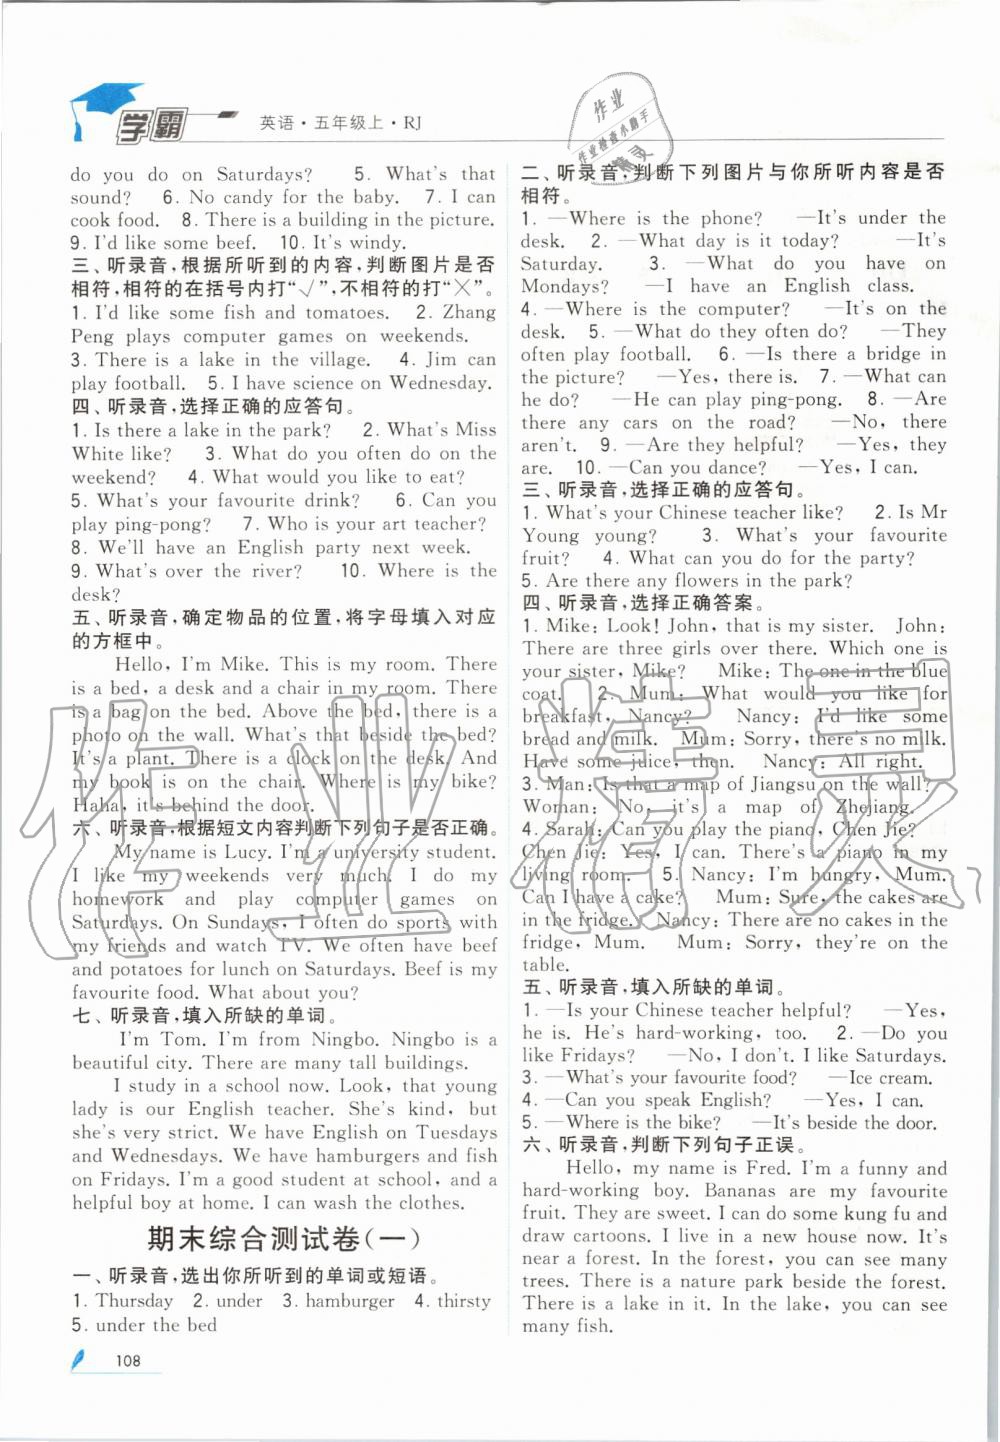 学霸
英语·五年级上·RJ
作业
作业检查小助手
do you do on Saturdays? 5. What's that
sound? 6. No candy for the baby. 7. I can
cook food. 8. There is a building in the picture.
9. I'd like some beef. 10. It's windy.
三、听录音,根据所听到的内容,判断图片是否
相符,相符的在括号内打“√”,不相符的打“×”。
1. I'd like some fish and tomatoes. 2. Zhang
Peng plays computer games on weekends.
3. There is a lake in the village. 4. Jim can
play football. 5. I have science on Wednesday.
四、听录音,选择正确的应答句。
1. Is there a lake in the park? 2. What's Miss
White like? 3. What do you often do on the
weekend? 4. What would you like to eat?
5. What's your favourite drink? 6. Can you
play ping-pong? 7. Who is your art teacher?
8. We'll have an English party next week.
9. What's over the river? 10. Where is the
desk?
五、听录音,确定物品的位置,将字母填入对应
的方框中。
Hello, I'm Mike. This is my room. There
is a bed, a desk and a chair in my room. There
is a bag on the bed. Above the bed, there is a
photo on the wall. What's that beside the bed?
It's a plant. There is a clock on the desk. And
my book is on the chair. Where is my bike?
Haha, it's behind the door.
六、听录音,根据短文内容判断下列句子是否正确。
My name is Lucy. I'm a university student.
I like my weekends very much. I do my
homework and play computer games on
Saturdays. On Sundays, I often do sports with
my friends and watch TV. We often have beef
and potatoes for lunch on Saturdays. Beef is my
favourite food. What about you?
七、听录音,填入所缺的单词。
I'm Tom. I'm from Ningbo. Ningbo is a
beautiful city. There are many tall buildings.
I study in a school now. Look, that young
lady is our English teacher. She's kind, but
she's very strict. We have English on Tuesdays
and Wednesdays. We have hamburgers and fish
on Fridays. I'm a good student at school, and a
helpful boy at home. I can wash the clothes.
期末综合测试卷(一)
一、听录音,选出你所听到的单词或短语。
1. Thursday 2. under 3. hamburger 4. thirsty
5. under the bed
108
二、听录音,判断下列图片与你所听内容是否
相符。
1. —Where is the phone? —It's under the
desk. 2. —What day is it today? —It's
Saturday. 3. —What do you have on
Mondays? —I have an English class.
4. —Where is the computer? —It's on the
desk. 5. —What do they often do? —They
often play football. 6. —Is there a bridge in
the picture? —Yes, there is. 7. —What can
he do? —He can play ping-pong. 8. —Are
there any cars on the road? —No, there
aren't. 9. —Are they helpful? —Yes, they
are. 10. —Can you dance? —Yes, I can.
三、听录音,选择正确的应答句。
1. What's your Chinese teacher like? 2. Is Mr
Young young? 3. What's your favourite
fruit? 4. What can you do for the party?
5. Are there any flowers in the park?
四、听录音,选择正确答案。
1. Mike: Look! John, that is my sister. John:
There are three girls over there. Which one is
your sister, Mike? Mike: The one in the blue
coat. 2. Mum: What would you like for
breakfast, Nancy? Nancy: I'd like some
bread and milk. Mum: Sorry, there's no milk.
Have some juice, then. Nancy: All right.
3. Man: Is that a map of Jiangsu on the wall?
Woman: No, it's a map of Zhejiang.
4. Sarah: Can you play the piano, Chen Jie?
Chen Jie: Yes, I can. There's a piano in my
living room. 5. Nancy: I'm hungry, Mum.
Can I have a cake? Mum: Sure, the cakes are
in the fridge. Nancy: There are no cakes in the
fridge, Mum. Mum: Sorry, they're on the
table.
五、听录音,填入所缺的单词。
1. —Is your Chinese teacher helpful? —Yes,
he is. He's hard-working, too. 2. —Do you
like Fridays? —No, I don't. I like Saturdays.
3. —What's your favourite food? —Ice cream.
4. —Can you speak English? —Yes, I can.
5. —Where is the bike? —It's beside the door.
六、听录音,判断下列句子正误。
Hello, my name is Fred. I'm a funny and
hard-working boy. Bananas are my favourite
fruit. They are sweet. I can do some kung fu and
draw cartoons. I live in a new house now. It's
near a forest. In the forest, you can see many
trees. There is a nature park beside the forest.
There is a lake in it. In the lake, you can see
many fish.